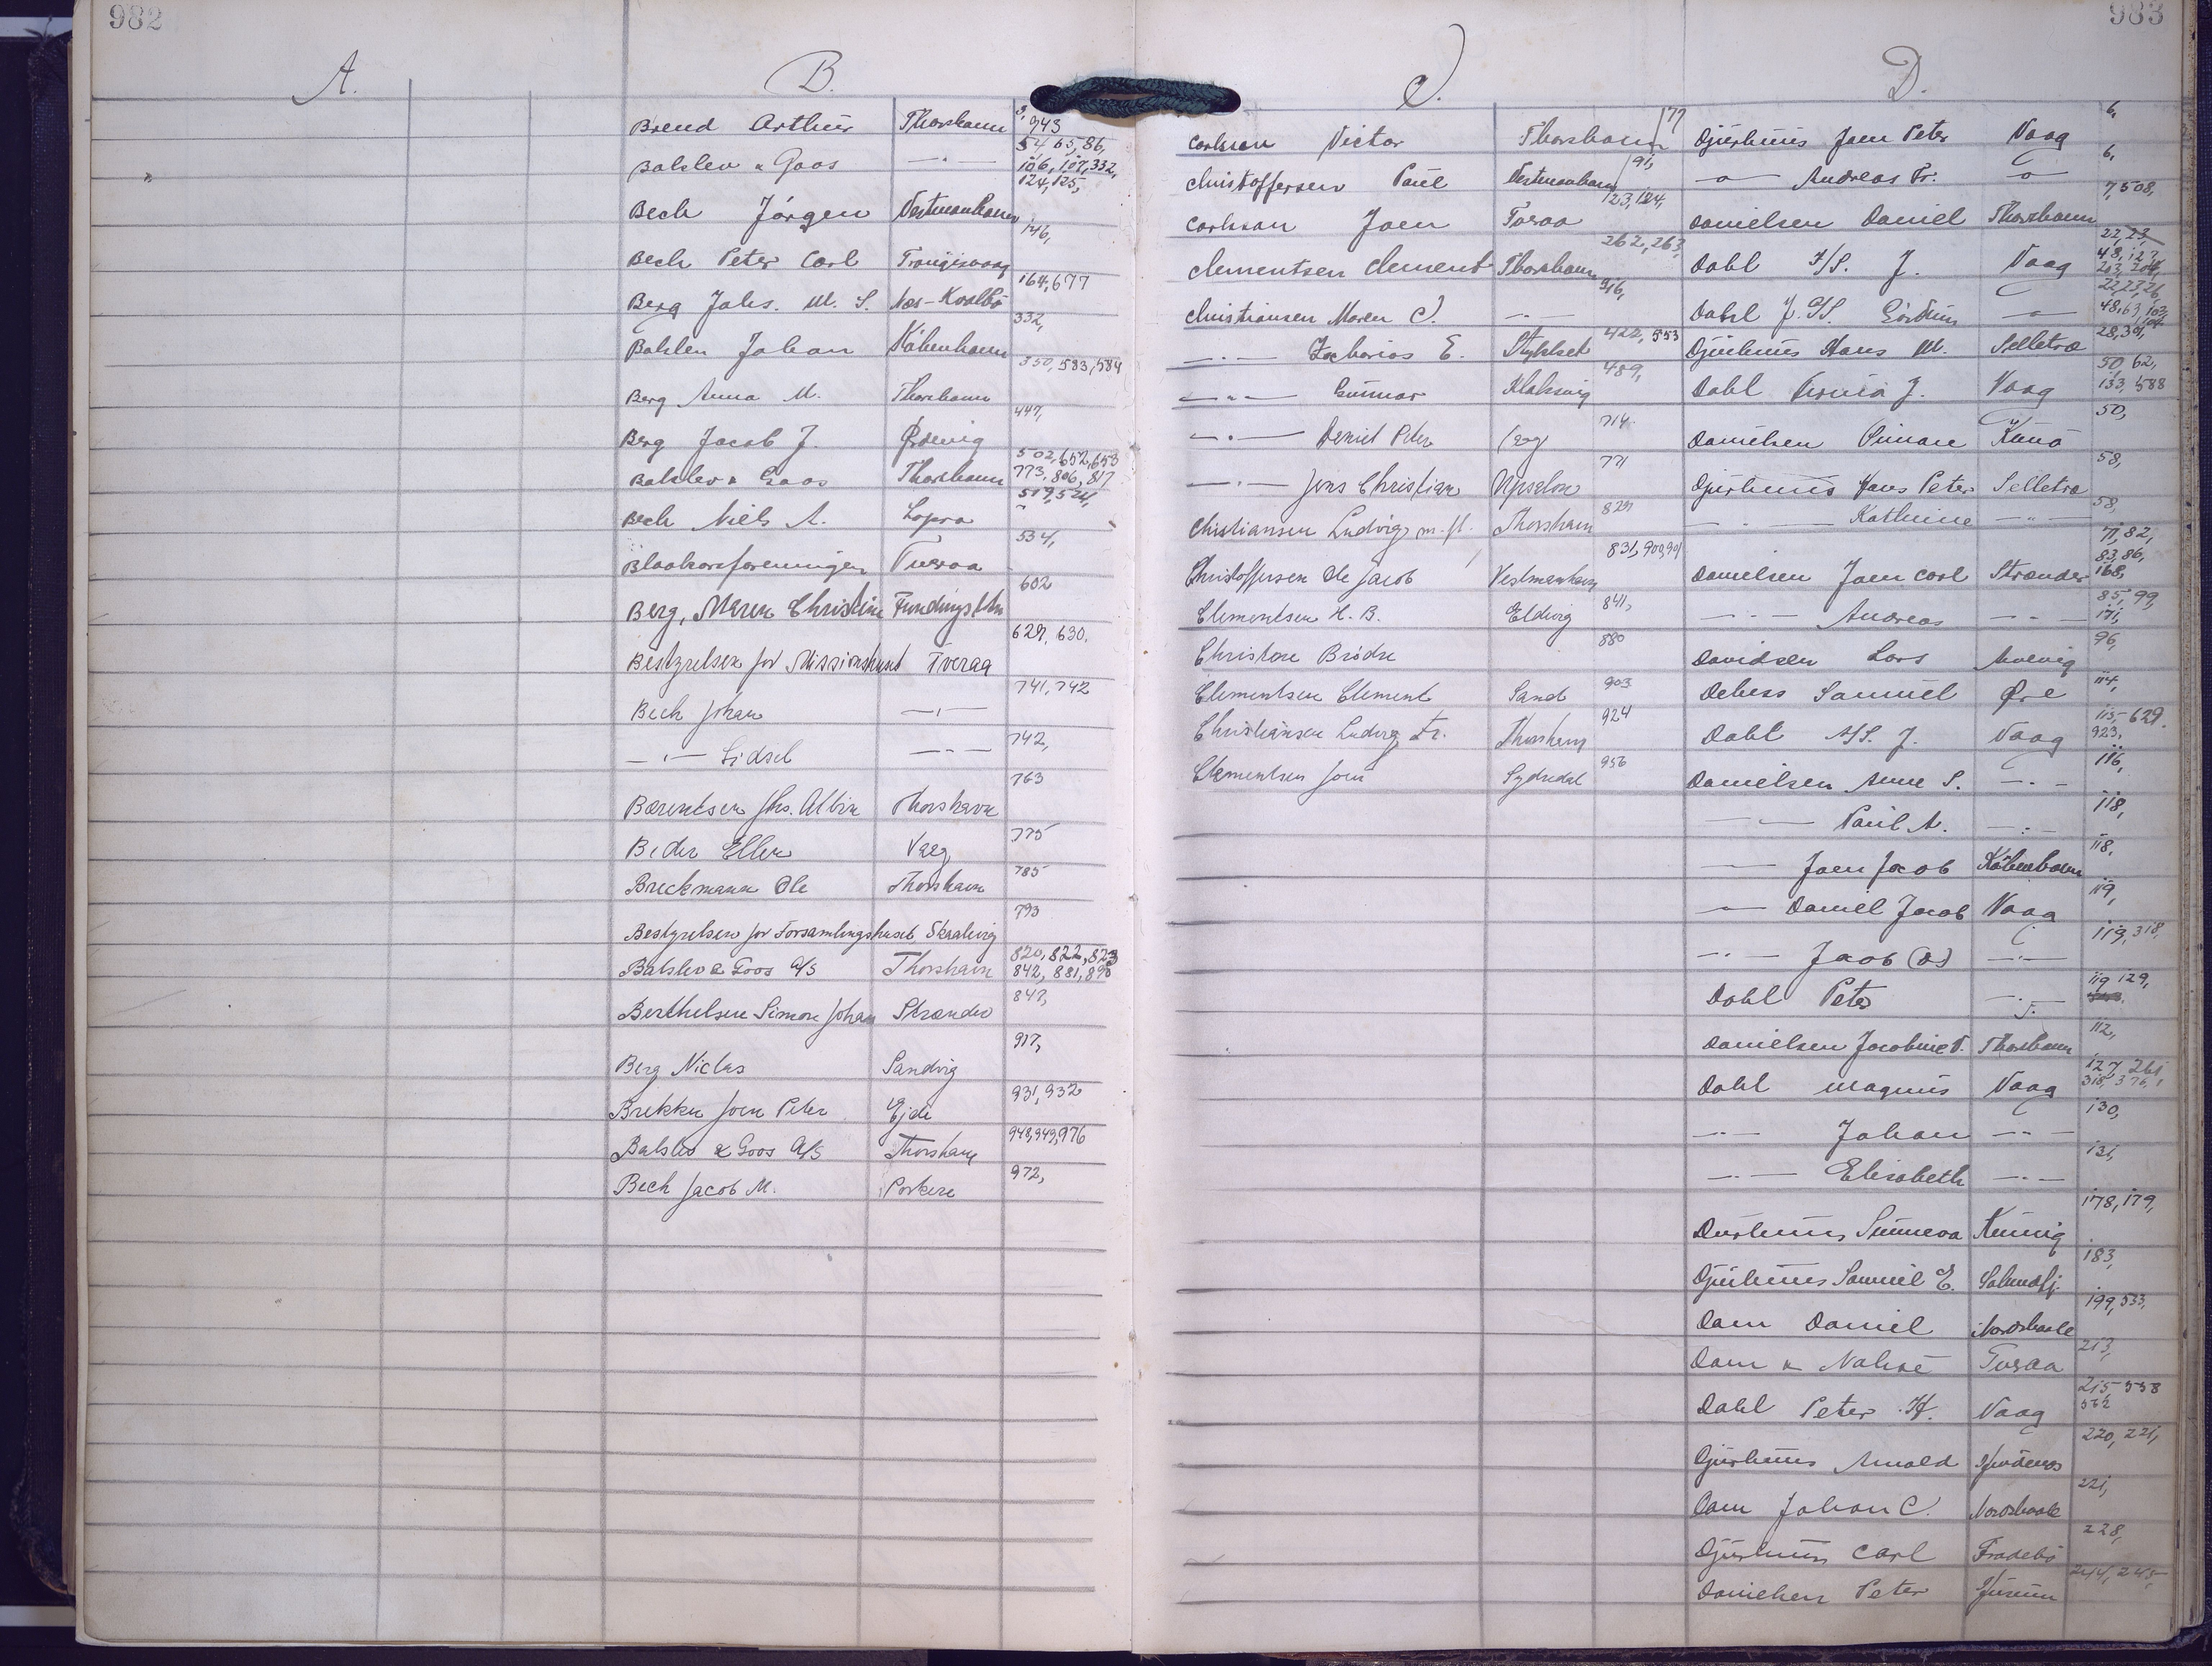 982
A.
B.
Brend Arthur Thorshavn 3, 943
Balslev & Goos —"— 54, 65, 86, 106, 107, 332, 124, 125,
Bech Jørgen Vestmanhavn
Bech Peter Carl Trangisvaag 146,
Berg Johs. M. S. Næs-Kvalbö 164, 677
Balslev Johan Köbenhavn 332,
Berg Anna M. Thorshavn 350, 583, 584
Berg Jacob J. Ørdevig 447,
Balslev & Goos Thorshavn 502, 652, 653 773, 806, 817
Bech Niels A. Lopra 519, 524,
Blaakorsforeningen Tveraa 534,
Berg, Maren Christine Fundingsbtn 602
Bestyrelsen for Missionshuset Tveraa 629, 630.
Bech Johan —"— 741, 742
—"— Sidsel —"— 742,
Bærentsen Jhs. Albin Thorshavn 763
Beder Ellen Vaag 775
Breckmann Ole Thorshavn 785
Bestyrelsen for Forsamlingshuset, Skaalevig 793
Balslev & Goos A/S Thorshavn 820, 822, 823 842, 881, 890
Berthelsen Simon Johan Strænder 847,
Berg Niclas Sandvig 917,
Brekku Joen Peter Ejde 931, 932
Balslev & Goos A/S Thorshavn 948, 949, 976
Bech Jacob M. Porkere 972,
983
C.
Carlsson Victor Thorshavn 77
Christoffersen Paul Vestmanhavn 91,
Carlsson Joen Tveraa 123, 124,
Clementsen Clement Thorshavn 262, 263,
Christiansen Maren C. —"— 916,
—"— Zacharias E. Stykket 422, 553
—"— Gunnar Klaksvig 489,
—"— Daniel Peter 714
—"— Jens Christian 771
Christiansen Ludvig m. fl. Thorshavn 829
Christoffersen Ole Jacob Vestmanhavn 831, 900, 901
Clementsen H. B. Eldevig 841,
Christore Brödre 880
Clementsen Clement Sand 903
Christiansen Ludvig Fr. Thorshavn 924
Clementsen Joen Sydredal 956
D.
Djurhuus Joen Peter Vaag 6,
—"— Andreas Fr. —"— 6,
Danielsen Daniel Thorshavn 7, 508,
Dahl A/S. J. Vaag 22, 23, 48, 127, 203, 204,
Dahl J. S/S. —"— 22, 23, 26, 48, 63, 103, 104
Djurhuus Hans M. Selletræ 28, 30,
Dahl J. Vaag 50, 62, 133, 588
Danielsen Simon Kunö 50,
Djurhuus Hans Peter Selletræ 58,
—"— Kathrine —"— 58,
Danielsen Joen Carl Strænder 71, 82, 83, 86, 168,
—"— Andreas —"— 85, 99, 171,
Davidsen Lars 96,
Debess Samuel Øre 114,
Dahl A/S. J. Vaag 115, 629. 923,
Danielsen Anne S. —"— 116,
—"— Paul A. —"— 118,
—"— Joen Jacob Köbenhavn 118,
—"— Daniel Jacob Vaag 119,
—"— Jacob (D) —"— 119, 318,
Dahl Peter —"— 119 129,
Danielsen Jacobine V. Thorshavn 112,
Dahl Magnus Vaag 127, 261, 318, 376,
—"— Johan —"— 130,
—"— Elisabeth —"— 131,
Durhuus Sunneva Kunvig 178, 179,
Djurhuus Samuel E. Salmdlj. 183,
Dam Daniel Nordskaale 199, 533,
Dam & Nolsøe Tveraa 213,
Dahl Peter H. Vaag 215 558 562
Djurhuus Arnold 220, 221,
Dam Johan C. Nordskaale 221,
Djurhuus Carl Fradebö 228,
Danielsen Peter Husum 244, 245,